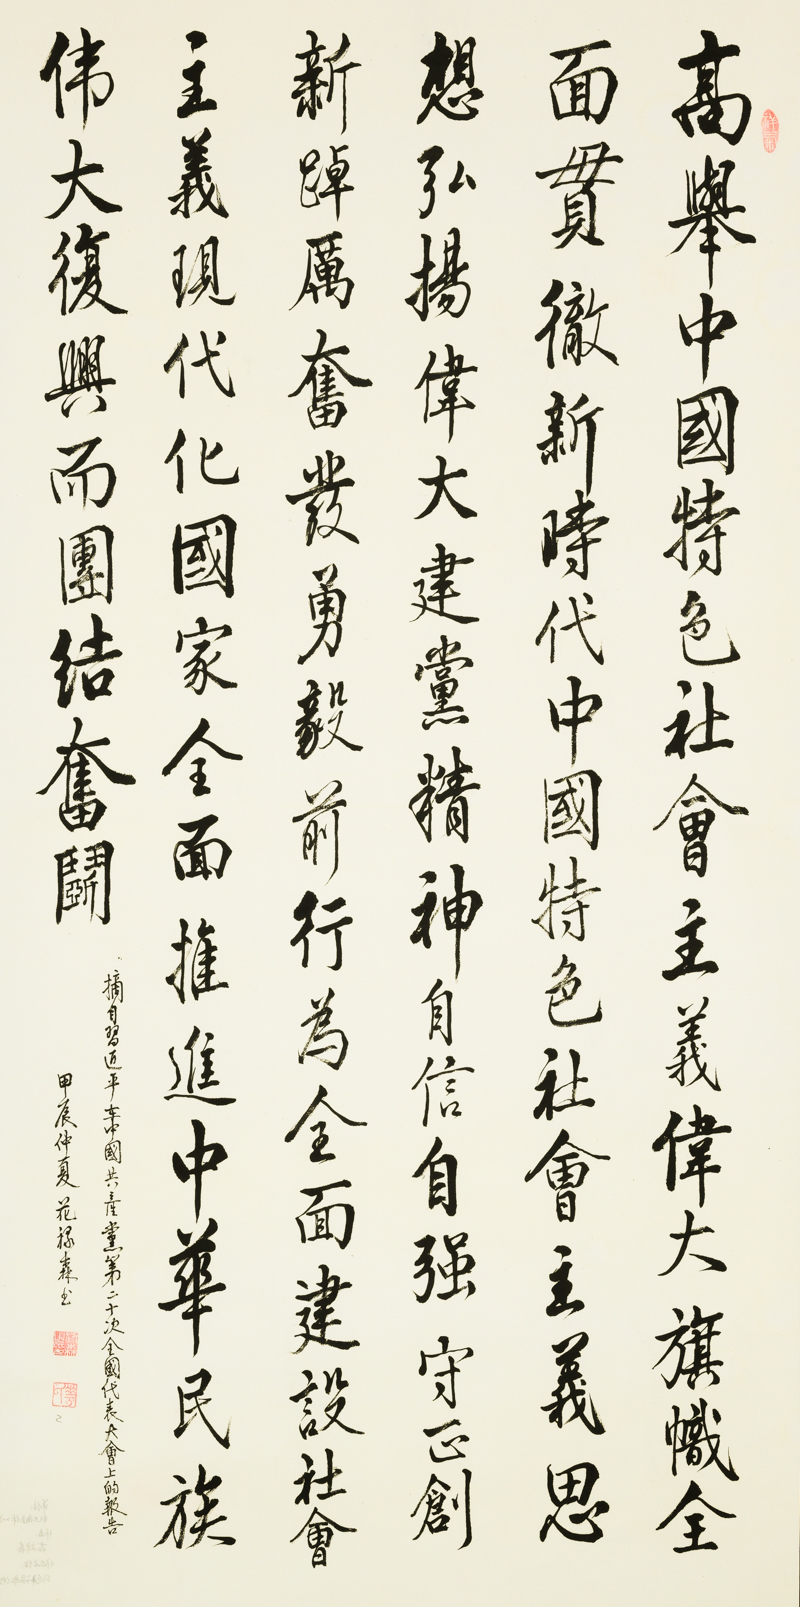 高舉中國特色社會主義偉大旗幟全
面貫徹新時代中國特色社會主義思
想弘揚偉大建黨精神自信自强守正創
新踔厲奮發勇毅前行為全面建設社會
主義現代化國家全面推進中華民族
伟大復興而團结奮鬭
摘自習近平在中國共產黨第二十次全國代表大會上的報告
甲辰仲夏范祿森书